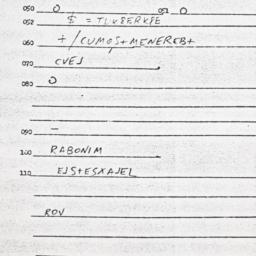 050 O 051 O
052 $ = TLV8ERKPE
060 +/CUMOS+MENEREB+
070 CVEJ
080 O
090 —
100 RABONIM
110 EJS+ESXAJEL
ROV